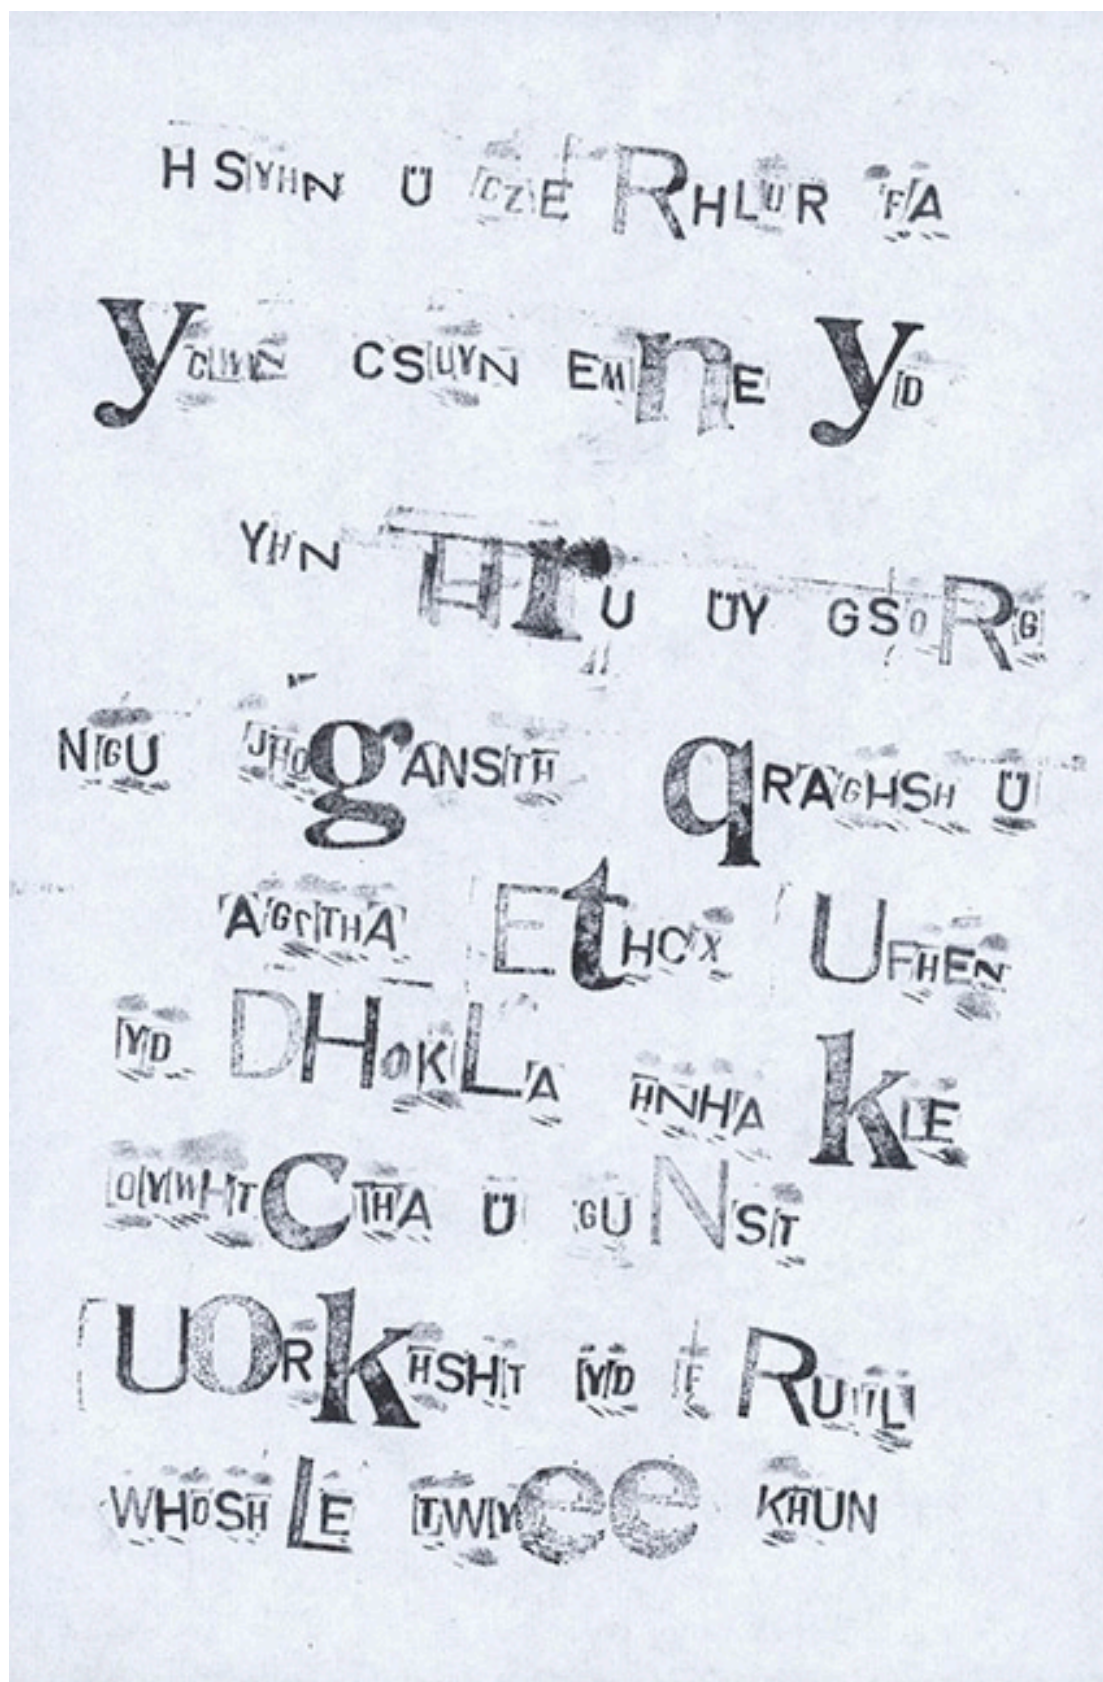 HSYHN Ü CZE RHLUR FA
yCWN CSUYN EMnE yD
YHN HIU ÜY GSORG
NGU JHOgANSITH qRAGHSH Ü
AGSITHA EtHCX UFHEN
YD DHOKLA HNHA kLE
OYWHTCTHA Ü GUNSIT
UORkHSHT YD RUTL
WHOSHLE TWYee KHUN